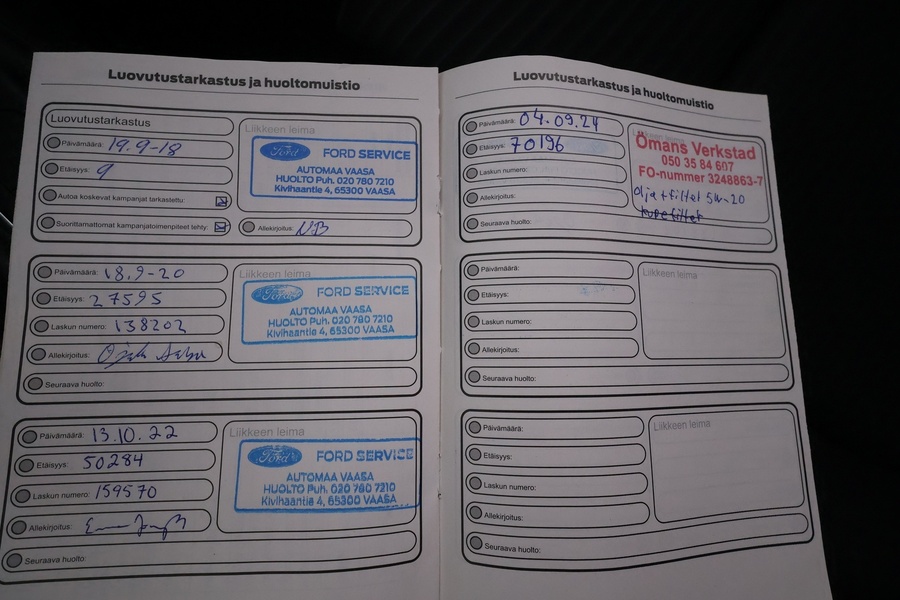 Luovutustarkastus ja huoltomuistio
Luovutustarkastus
Päivämäärä: 19.9-18
Etäisyys: 9
Autoa koskevat kampanjat tarkastettu:
Suorittamattomat kampanjatoimenpiteet tehty:
Liikkeen leima
Ford FORD SERVICE
AUTOMAA VAASA
HUOLTO Puh. 020 780 7210
Kivihaantie 4, 65300 VAASA
Allekirjoitus: NB
Päivämäärä: 18.9-20
Etäisyys: 27595
Laskun numero: 138202
Allekirjoitus:
Seuraava huolto:
Liikkeen leima
Ford FORD SERVICE
AUTOMAA VAASA
HUOLTO Puh. 020 780 7210
Kivihaantie 4, 65300 VAASA
Päivämäärä: 13.10.22
Etäisyys: 50284
Laskun numero: 159570
Allekirjoitus:
Seuraava huolto:
Liikkeen leima
Ford FORD SERVICE
AUTOMAA VAASA
HUOLTO Puh. 020 780 7210
Kivihaantie 4, 65300 VAASA
Luovutustarkastus ja huoltomuistio
Päivämäärä: 04.09.24
Etäisyys: 70196
Laskun numero:
Allekirjoitus:
Seuraava huolto:
Liikkeen leima
Ömans Verkstad
050 35 84 607
FO-nummer 3248863-7
Olja + filter 5w-20
Päivämäärä:
Etäisyys:
Laskun numero:
Allekirjoitus:
Seuraava huolto:
Liikkeen leima
Päivämäärä:
Etäisyys:
Laskun numero:
Allekirjoitus:
Seuraava huolto:
Liikkeen leima